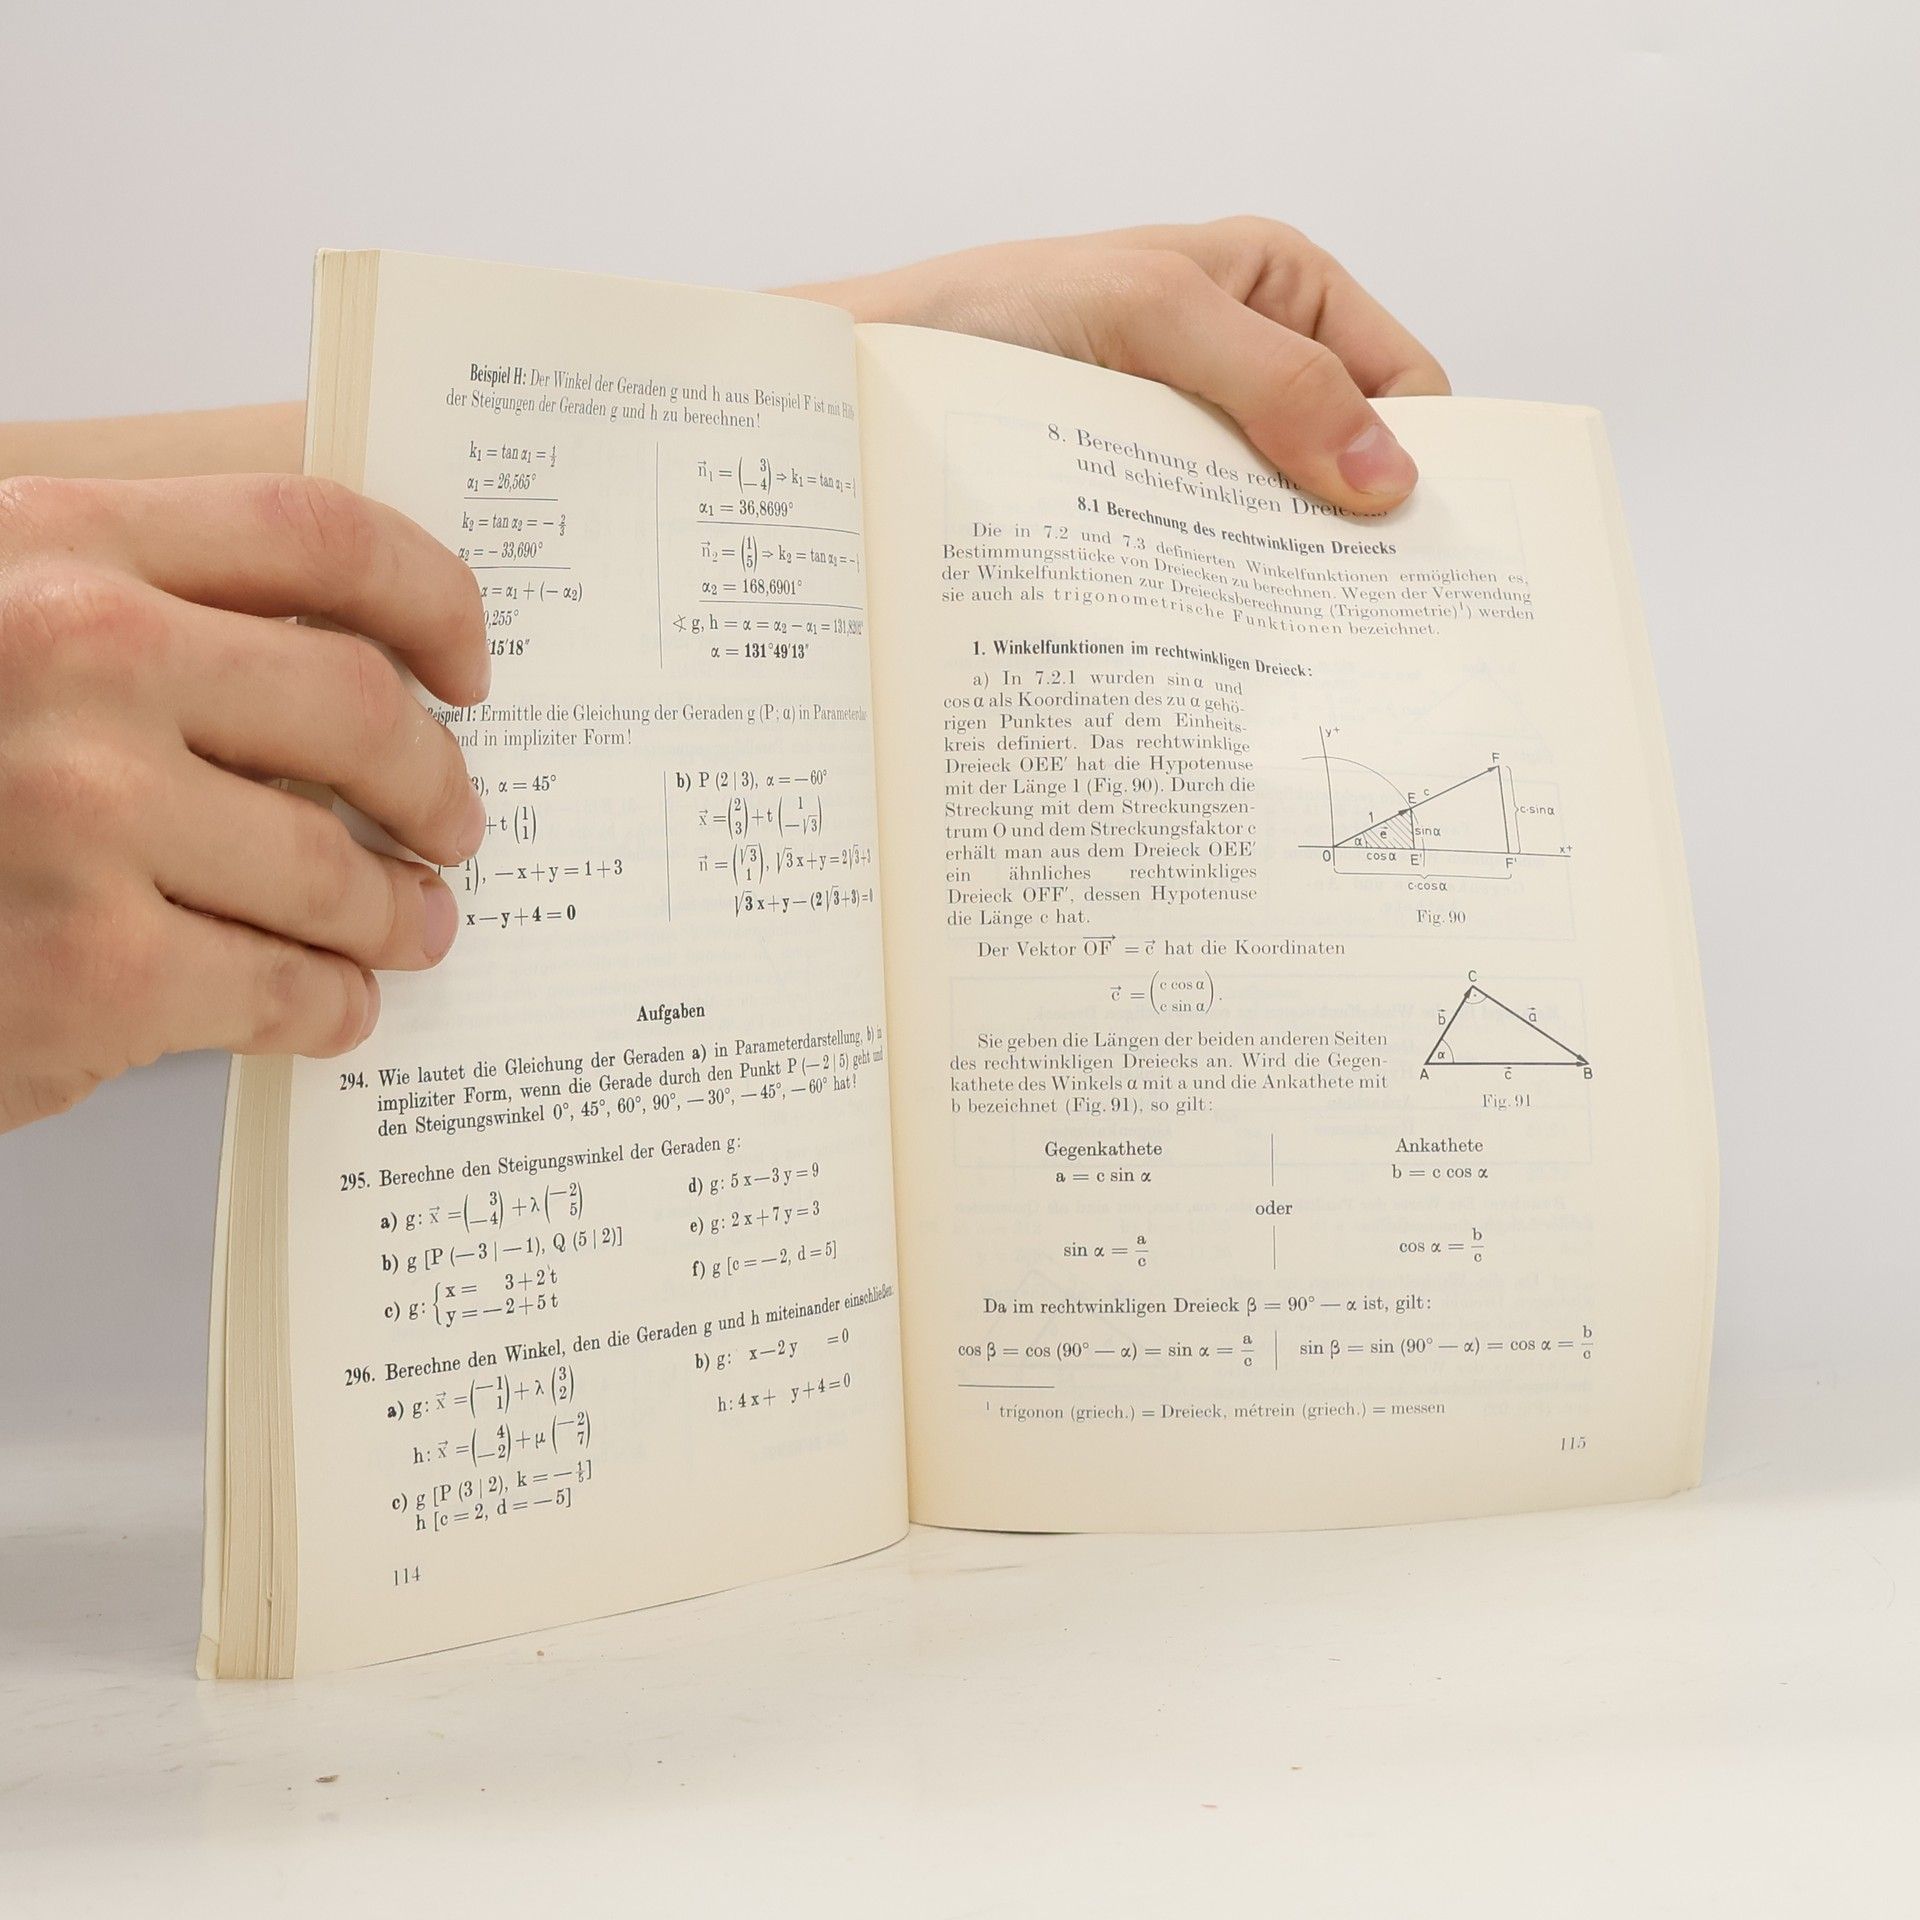 Beispiel H: Der Winkel der Geraden g und h aus Beispiel F ist mit
der Steigungen der Geraden g und h zu berechnen!
k₁ = tan α₁ = ½
α₁ = 26,565°
k₂ = tan α₂ = − ⅔
α₂ = − 33,690°
α = α₁ + (− α₂)
,255°
15′18″
n⃗₁ = (3 / −4) ⇒ k₁ = tan α₁ =
α₁ = 36,8699°
n⃗₂ = (1 / 5) ⇒ k₂ = tan α₂ = −
α₂ = 168,6901°
∢ g, h = α = α₂ − α₁ =
α = 131°49′13″
Beispiel I: Ermittle die Gleichung der Geraden g (P; α) in
und in impliziter Form!
3), α = 45°
+ t (1 / 1)
(−1 / 1), −x + y = 1 + 3
x − y + 4 = 0
b) P (2 | 3), α = −60°
x⃗ = (2 / 3) + t (1 / −√3)
n⃗ = (√3 / 1), √3 x + y = 2√3 + 3
√3 x + y − (2√3 + 3) = 0
Aufgaben
294. Wie lautet die Gleichung der Geraden a) in Parameterdarstellung, b) in
impliziter Form, wenn die Gerade durch den Punkt P (−2 | 5) geht und
den Steigungswinkel 0°, 45°, 60°, 90°, −30°, −45°, −60° hat!
295. Berechne den Steigungswinkel der Geraden g:
a) g: x⃗ = (3 / −4) + λ (−2 / 5)
b) g [P (−3 | −1), Q (5 | 2)]
c) g: { x = 3 + 2 t
y = −2 + 5 t
d) g: 5 x − 3 y = 9
e) g: 2 x + 7 y = 3
f) g [c = −2, d = 5]
296. Berechne den Winkel, den die Geraden g und h miteinander einschließen:
a) g: x⃗ = (−1 / 1) + λ (3 / 2)
h: x⃗ = (4 / −2) + μ (−2 / 7)
b) g: x − 2 y = 0
h: 4 x + y + 4 = 0
c) g [P (3 | 2), k = −⅕]
h [c = 2, d = −5]
114
8. Berechnung des
und schiefwinkligen
8.1 Berechnung des rechtwinkligen Dreiecks
Die in 7.2 und 7.3 definierten Winkelfunktionen ermöglichen es,
Bestimmungsstücke von Dreiecken zu berechnen. Wegen der Verwendung
der Winkelfunktionen zur Dreiecksberechnung (Trigonometrie)¹) werden
sie auch als trigonometrische Funktionen bezeichnet.
1. Winkelfunktionen im rechtwinkligen Dreieck:
a) In 7.2.1 wurden sin α und
cos α als Koordinaten des zu α gehö-
rigen Punktes auf dem Einheits-
kreis definiert. Das rechtwinklige
Dreieck OEE′ hat die Hypotenuse
mit der Länge 1 (Fig. 90). Durch die
Streckung mit dem Streckungszen-
trum O und dem Streckungsfaktor c
erhält man aus dem Dreieck OEE′
ein ähnliches rechtwinkliges
Dreieck OFF′, dessen Hypotenuse
die Länge c hat.
y+
F
E c
1
c·sinα
e⃗
sinα
α
O
cosα
E′
F′
x+
c·cosα
Fig. 90
Der Vektor OF⃗ = c⃗ hat die Koordinaten
c⃗ = (c cos α / c sin α).
Sie geben die Längen der beiden anderen Seiten
des rechtwinkligen Dreiecks an. Wird die Gegen-
kathete des Winkels α mit a und die Ankathete mit
b bezeichnet (Fig. 91), so gilt:
C
b⃗
a⃗
α
A
c⃗
B
Fig. 91
Gegenkathete
a = c sin α
Ankathete
b = c cos α
oder
sin α = a/c
cos α = b/c
Da im rechtwinkligen Dreieck β = 90° − α ist, gilt:
cos β = cos (90° − α) = sin α = a/c | sin β = sin (90° − α) = cos α = b/c
¹ trígonon (griech.) = Dreieck, métrein (griech.) = messen
115